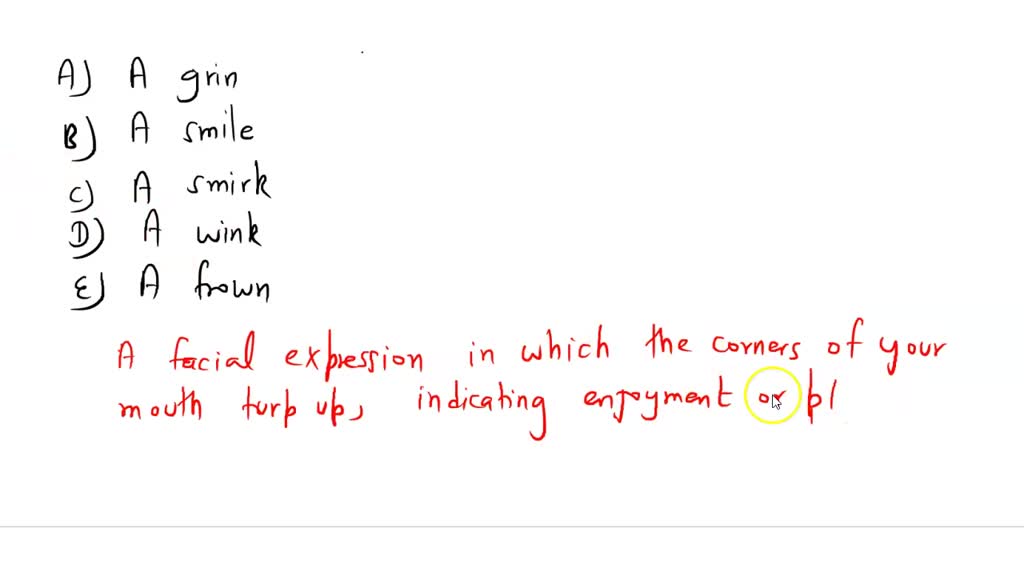 A) A grin
B) A smile
C) A smirk
D) A wink
E) A frown
A facial expression in which the corners of your
mouth turp up, indicating enjoyment or pl